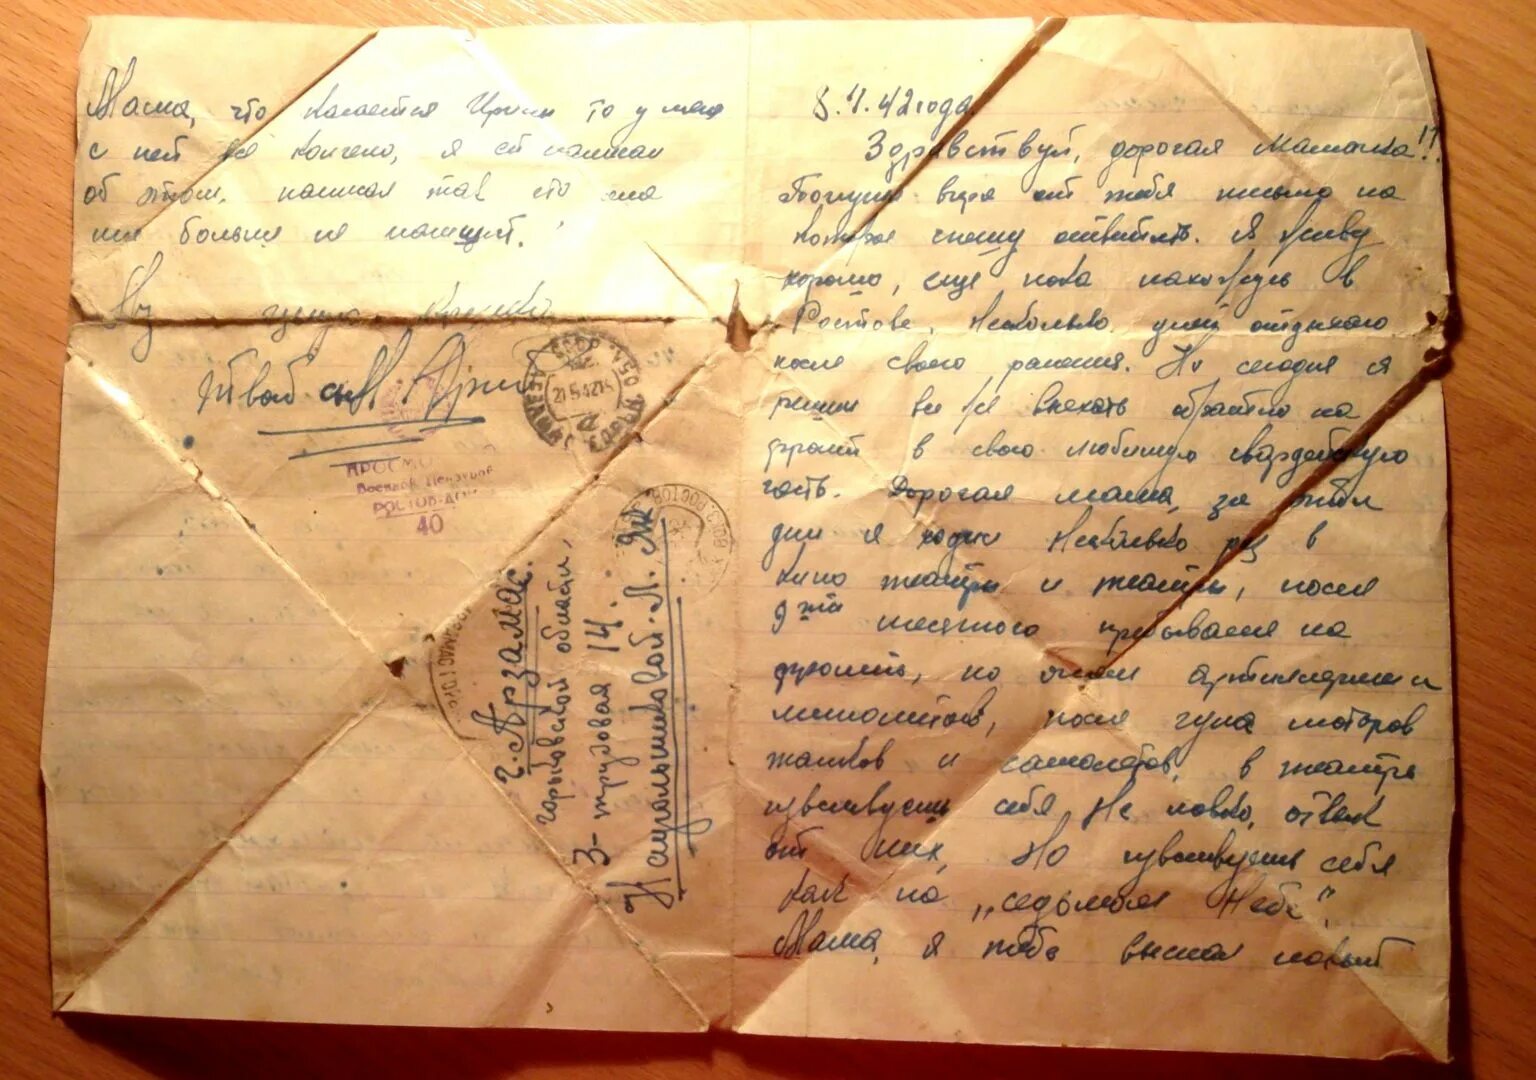 Мама, что касается Ирины то у меня
с ней всё кончено, я ей написал
об этом, написал так что она
мне больше не напишет.
Жду целую крепко
Твой сын
ПРОСМО
Военной Цензурой
РОСТОВ-ДОН
40
СССР
АРЗАМАС ГОРЬК. ОБЛ.
г. Арзамас.
горьковской области,
3-трудовая 14.
Напольниковой. Л. Я.
8.V.42 года.
Здравствуй, дорогая Мамочка!!
вчера от тебя письмо на
которое спешу ответить. Я живу
хорошо, еще пока нахожусь в
Ростове. Несколько дней отдыхаю
после своего ранения. Но сегодня я
решил все же выехать обратно на
фронт в свою любимую гвардейскую
часть. Дорогая мама, за эти
дни я ходил несколько раз в
кино театры и театры, после
9ти месячного пребывания на
фронте, но огнем артиллерии и
минометов, после гула моторов
танков и самолетов, в театре
чувствуешь себя не ловко, отвык
от них, но чувствуешь себя
как на „седьмом Небе".
Мама, я тебе выслал новый